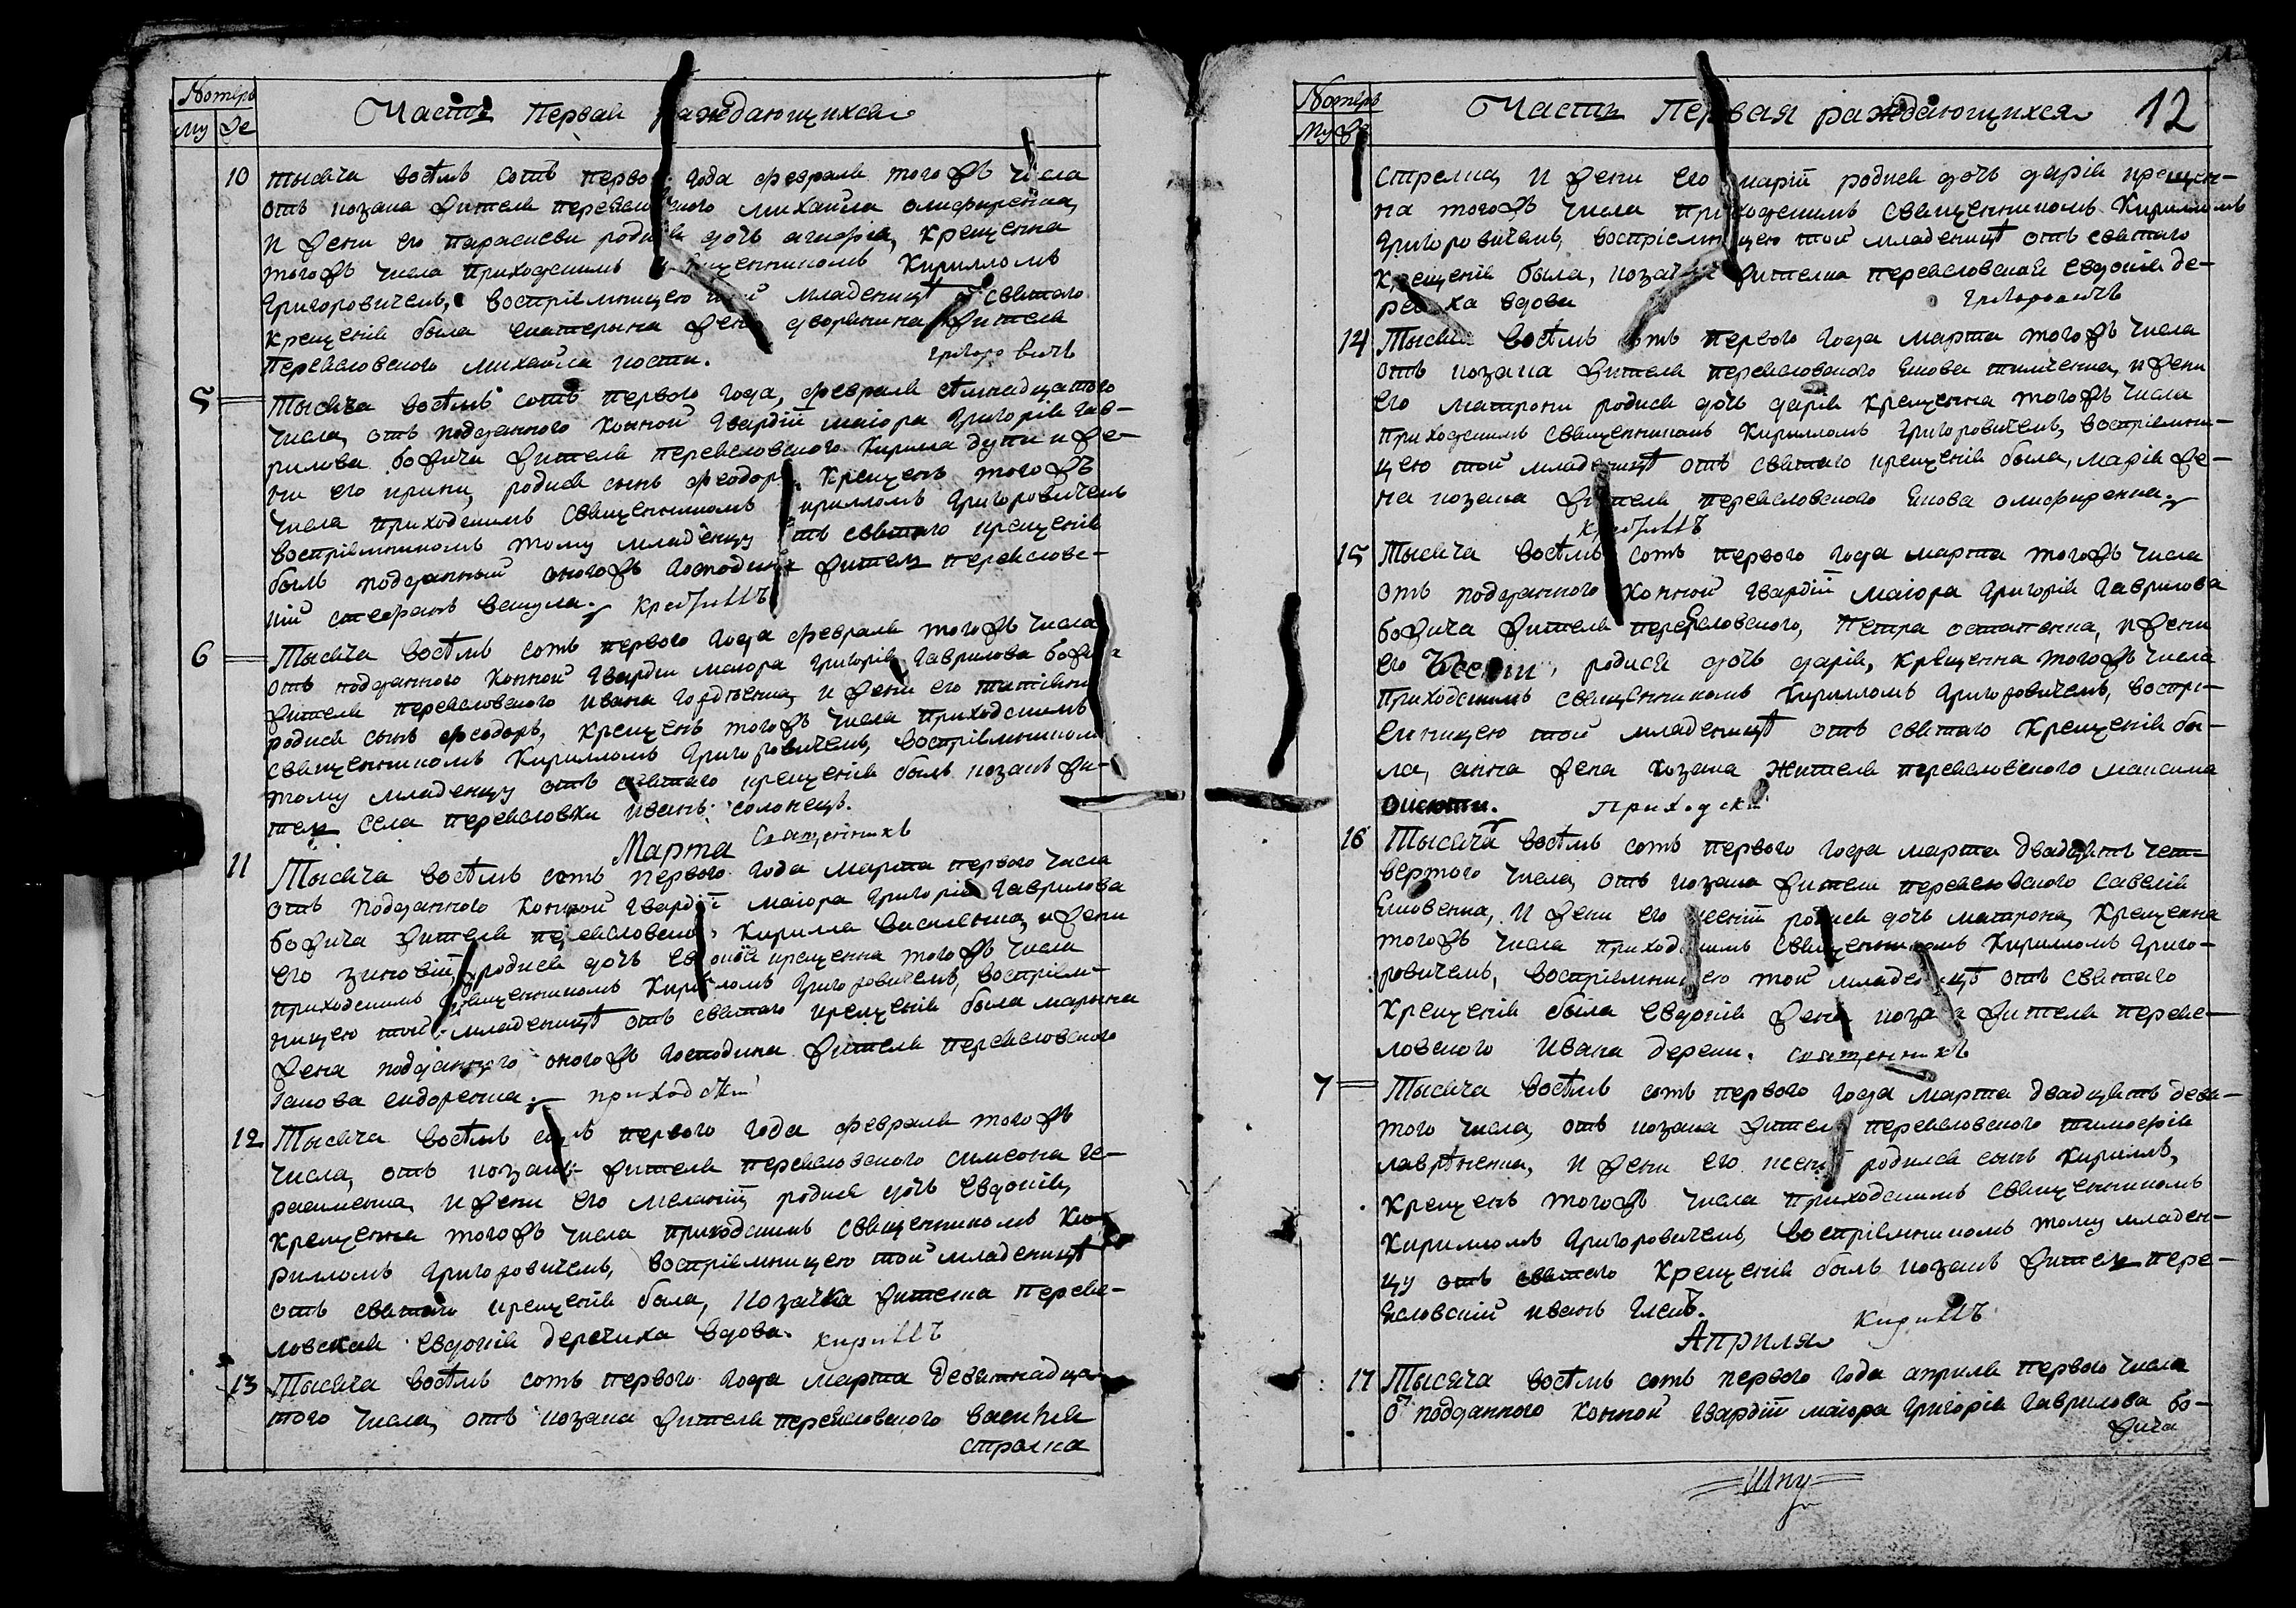 Номеръ
Му Же
Часть Первая раждающихся
10 тысяча восѣмъ сотъ перво года февраля тогожъ числа
отъ козака жителя переясловского михайла олифиренка,
и жени его параскеви родися дочь агафія, крещенна
тогожъ числа приходскимъ священникомъ Кирилломъ
Григоровичемъ, воспріемницею той младеницѣ отъ святаго
крещенія была екатерына жена дворянина жителя
переясловского михайла костки. Григоровичъ
5 Тысяча восѣмъ сотъ первого года, февраля сѣмнадцатого
числа, отъ подданного конной гвардіи маіора Григорія Гав-
рилова божича жителя переясловского Кирила дупки и же-
ни его ирини, родися сынъ феодоръ Крещенъ тогожъ
числа приходскимъ священникомъ Кирилломъ Григоровичемъ
воспріемникомъ тому младенцу отъ святаго крещенія
былъ подданный оногожъ господина житель переяслов-
кій стефанъ вакула. Кириллъ
6 Тысяча восѣмъ сотъ первого года февраля тогожъ числа
отъ подданного конной гвардіи маіора Григорія Гаврилова божича
жителя переясловского ивана гордіенка, и жени его татіяни
родися сынъ феодоръ, крещенъ тогожъ числа приходскимъ
священникомъ Кирилломъ Григоровичемъ, воспріемникомъ
тому младенцу отъ святаго крещенія былъ козакъ жи-
тель села переясловки иванъ солонецъ.
Марта Священникъ
11 Тысяча восѣмъ сотъ первого года марта первого числа
отъ подданного конной гвардіи маіора Григорія Гаврилова
божича жителя переясловского Кирила василенка, и жени
его зиновіи, родися дочь евдокія крещенна тогожъ числа
приходскимъ священникомъ Кирилломъ Григоровичемъ, воспріем-
ницею той младеницѣ отъ святаго крещенія была марына
жена подданного оногожъ господина жителя переясловского
Якова сидоренка. приходскій
12 Тысяча восѣмъ сотъ первого года февраля тогожъ
числа, отъ козака жителя переясловского симеона ге-
расименка, и жени его меланіи, родися дочь Евдокія,
крещенна тогожъ числа приходскимъ священникомъ Ки-
рилломъ Григоровичемъ, воспріемницею той младеницѣ
отъ святаго крещенія была, козачка жителка перея-
ловская Евдокія деречиха вдова. Кириллъ
13 Тысяча восѣмъ сотъ первого года марта девятнадца-
того числа, отъ козака жителя переясловского василія
стрелка
Номеръ
Му Же
Часть Первая раждающихся 12
стрелка, и жени его маріи родися дочь дарія крещен-
на тогожъ числа приходскимъ священникомъ Кирилломъ
Григоровичемъ, воспріемницею той младеницѣ отъ святаго
Крещенія была, козачка жителка переясловская Евдокія де-
речиха вдова Григоровичъ
14 Тысяча восѣмъ сотъ первого года марта тогожъ числа
отъ козака жителя переясловского Якова тимченка, и жени
его матрони родися дочь дарія крещенна тогожъ числа
приходскимъ священникомъ Кирилломъ Григоровичемъ, воспріемни-
цею той младеницѣ отъ святаго крещенія была, марія же-
на козака жителя переясловского Якова олифиренка,
Кириллъ
15 Тысяча восѣмъ сотъ первого года марта тогожъ числа
отъ подданного Конной гвардіи маіора Григорія Гаврилова
божича жителя переясловского, петра остапенка, и жени
его родися дочь дарія, Крещенна тогожъ числа
приходскимъ священникомъ Кирилломъ Григоровичемъ, воспрі-
емницею той младеницѣ отъ святаго Крещенія бы-
ла, анна жена козака жителя переясловского максима
Приходскій
16 Тысяча восѣмъ сотъ первого года марта двадцять чет-
вертого числа, отъ козака жителя переясловского савелія
Яковенка, и жени его родися дочь матрона, Крещенна
тогожъ числа приходскимъ священникомъ Кирилломъ Григо-
ровичемъ, воспріемницею той младеницѣ отъ святаго
крещенія была евдокія жена козака жителя перея-
ловского Ивана дереки. Священникъ
7 Тысяча восѣмъ сотъ первого года марта двадцять девя-
того числа, отъ козака жителя переясловского тимофія
лавріненка, и жени его родился сынъ Кириллъ,
Крещенъ тогожъ числа приходскимъ священникомъ
Кирилломъ Григоровичемъ, воспріемникомъ тому младен-
цу отъ святаго Крещенія былъ козакъ житель пере-
ясловскій иванъ Кириллъ
Априля
17 Тысяча восѣмъ сотъ первого года априля первого числа
от подданного конной гвардіи маіора Григорія Гаврилова бо-
жича